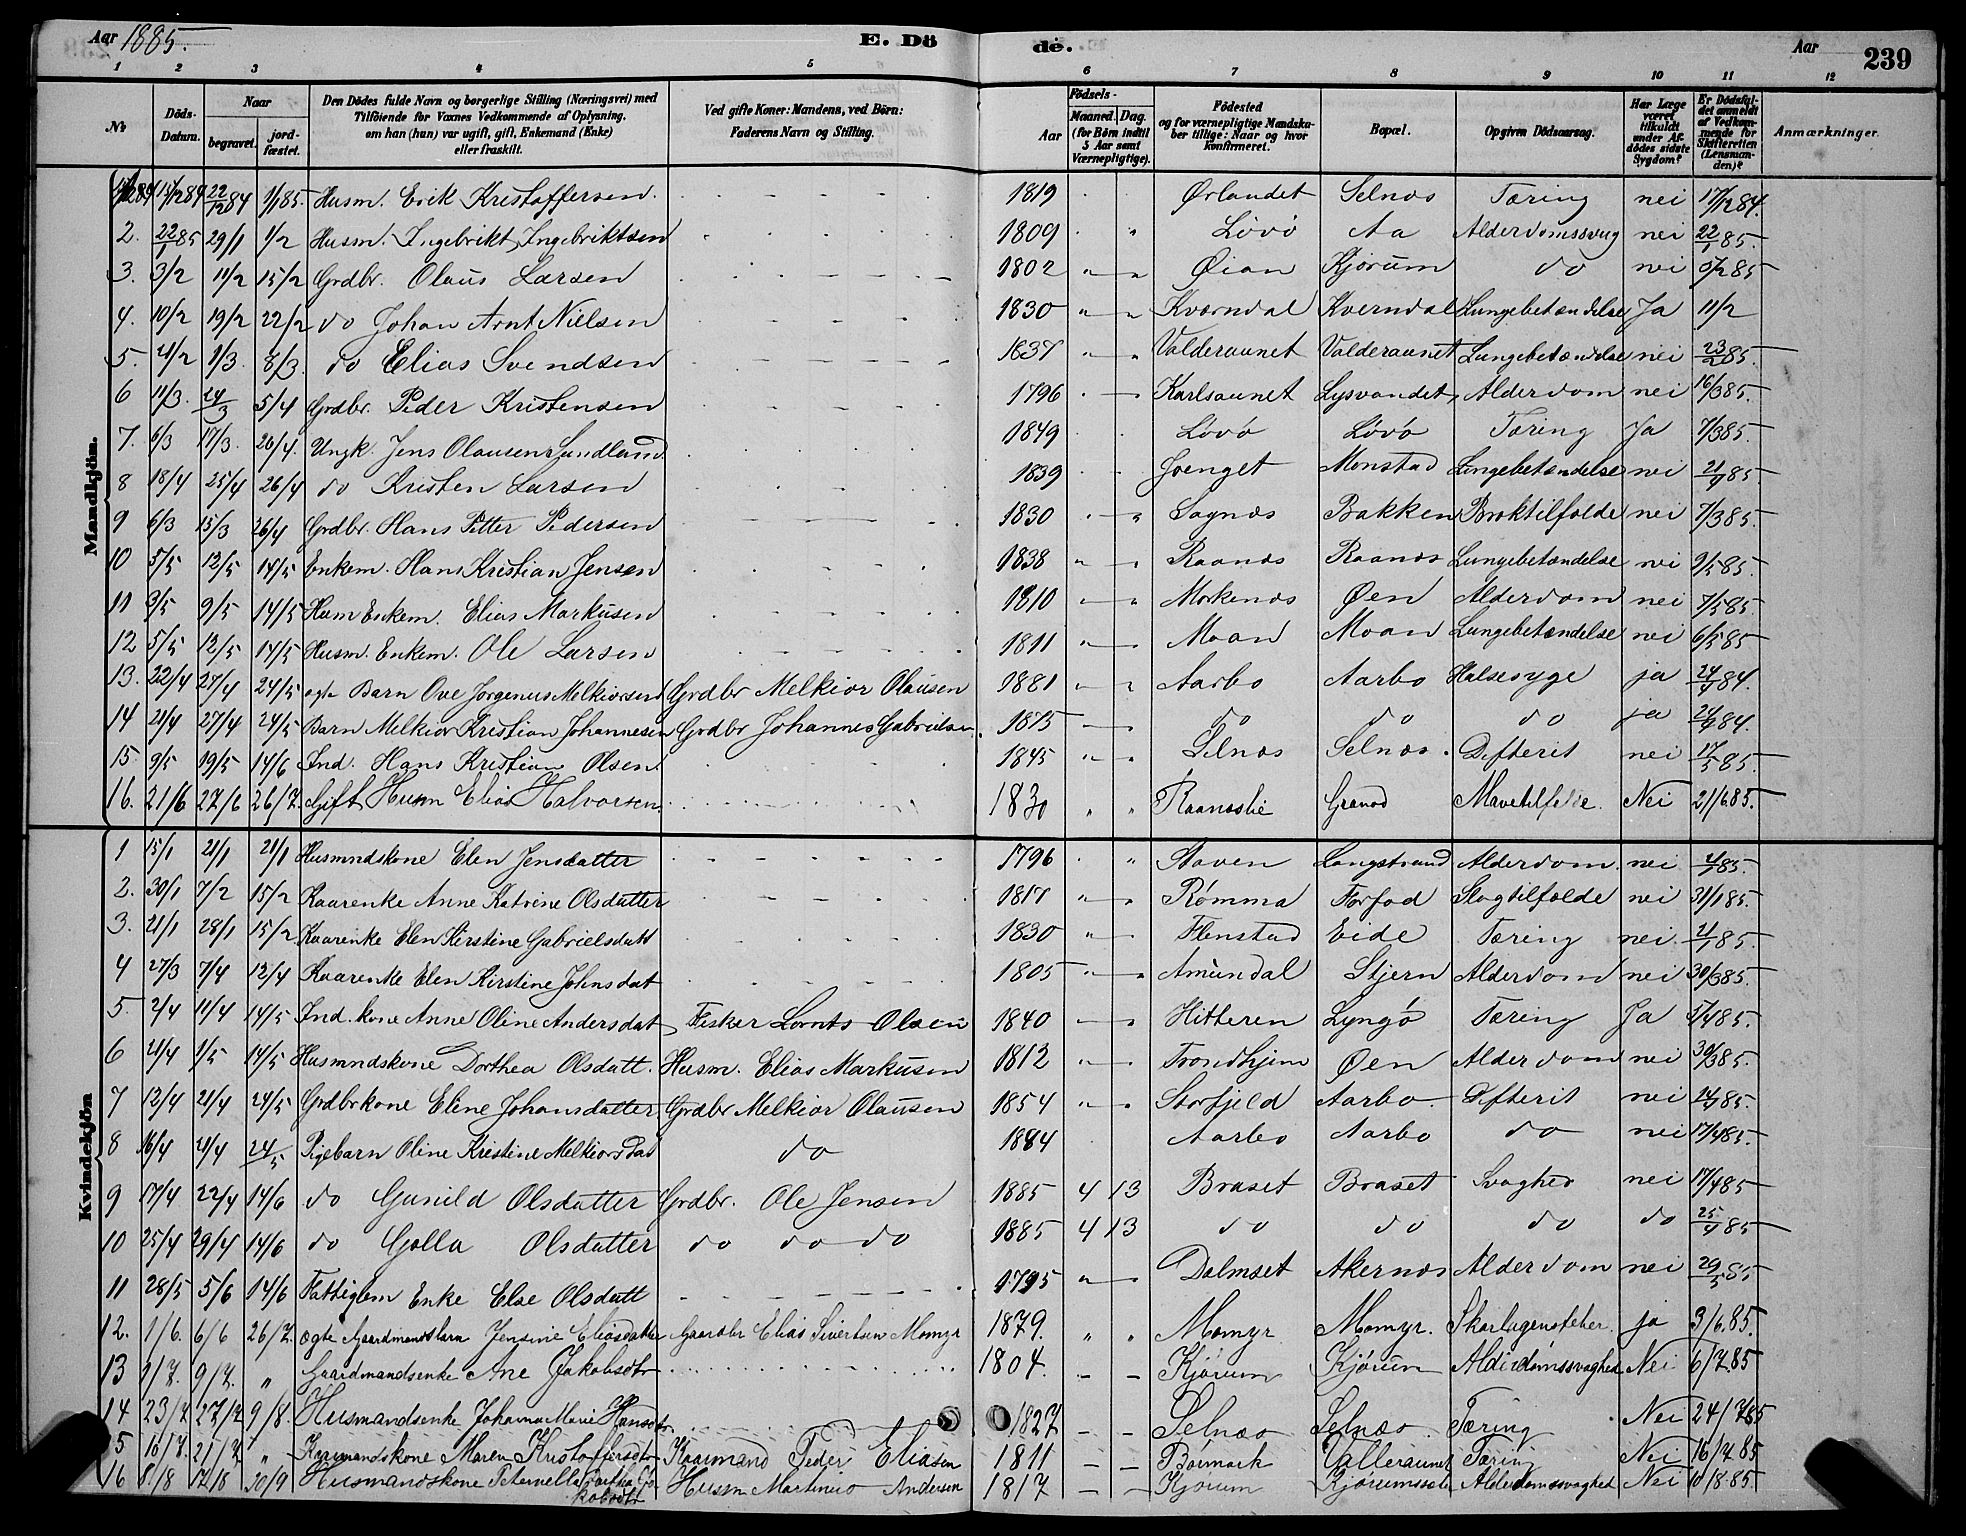 Aar 1885. E. Dö de. Aar 239
1 2 3 4 5 6 7 8 9 10 11 12
№ Döds-Datum. Naar begravet. jord-fæstet. Den Dödes fulde Navn og borgerlige Stilling (Næringsvei) med Tilföiende for Voxnes Vedkommende af Oplysning, om han (hun) var ugift, gift, Enkemand (Enke) eller fraskilt. Ved gifte Koner: Mandens, ved Börn: Faderens Navn og Stilling. Födsels- Aar Maaned. Dag. (for Börn indtil 5 Aar samt Værnepligtige). Födested og for værnepligtige Mandskaber tillige: Naar og hvor konfirmeret. Bopæl. Opgiven Dödsaarsag. Har Læge været tilkaldt under Afdödes sidste Sygdom? Er Dödsfaldet anmeldt af Vedkommende for Skifteretten (Lensmanden)? Anmærkninger.
Mandkjön.
15/12 84 22/12 84 1/1 85. Husm. Erik Kristoffersen. 1819 Ørlandet Selnæs Tæring nei 17/12 84.
2. 22/1 85 29/1 1/2 Husm. Ingebrikt Ingebriktsen 1809 Lövö Aa Alderdomssvag nei 22/1 85.
3. 3/2 11/2 15/2 Grdbr. Olaus Larsen 1802 Øian Kjörum do nei 5/2 85
4. 10/2 19/2 22/2 do Johan Arnt Nielsen 1830 Kværndal Kverndal Lungebetændelse Ja 11/2
5. 21/2 1/3 8/3 do Elias Svendsen 1837 Valderaunet Valderaunet Lungebetændelse nei 23/2 85.
6 11/3. 24/3 5/4 Grdbr. Peder Kristensen 1796 Karlsaunet Lysvandet Alderdom nei 16/3 85.
7. 6/3 17/3. 26/4. Ungk. Jens Olausen Sundland 1849 Lövö Lövö Tæring Ja 7/3 85.
8 18/4 25/4 26/4 do Kristen Larsen 1839 Monstad Lungebetændelse nei 21/4 85.
9 6/3 15/3 26/4 Grdbr. Hans Petter Pedersen 1830 Sagnæs Bakken Broktilfælde nei 7/3 85.
10 5/5 12/5 14/5 Enkem. Hans Kristian Jensen 1838 Raanæs Raanæs Lungebetændelse nei 9/5 85.
11 3/5 9/5 14/5 Husm Enkem. Elias Markusen 1810 Mørkenæs Øen Alderdom nei 7/5 85.
12 5/5 12/5 14/5 Husm. Enkem. Ole Larsen 1811 Moan Moan Lungebetændelse nei 6/5 85
13. 22/4 27/4 24/5 ægte Barn Ove Jørgenus Melkiorsen Grdbr Melkior Olausen 1881 Aarbo Aarbo Halssyge ja 24/4 84.
14 21/4 27/4 24/5 Barn Melkior Kristian Johannesen Grdbr Johannes Gabrielsen 1875 do do do ja 24/4 84.
15. 9/5 19/5 14/6 Ind. Hans Kristian Olsen. 1845 Selnæs Selnæs. Difterit nei 17/5 85.
16. 21/6 27/6 26/7. Gift Husm Elias Halvorsen. 1830 Raanæslie Mavetilfelde. Nei 21/6 85.
Kvindekjön
1 15/1 21/1 21/1 Husmndskone Elen Jensdatter 1796 Staven Langstrand Alderdom. nei
2. 30/1 7/2 15/2 Kaarenke Anne Katrine Olsdatter 1817 Rømma Forfod Slagtilfælde nei 31/1 85.
3. 21/1 28/1 15/2 Kaarenke Elen Kirstine Gabrielsdatt 1830 Flenstad Eide Tæring nei. 21/1 85.
4 27/3 7/4 12/4 Kaarenke Elen Kirstine Johnsdat 1805 Amundal Stjern Alderdom nei 30/3 85.
5. 2/4 11/4 14/5 Ind. kone Anne Oline Andersdat Fisker Lornts Olsen 1840 Hitteren Lyngö Tæring Ja
6 21/4 1/5 14/5 Husmndskone Dorthea Olsdatt. Husm. Elias Markusen 1812 Trondhjem Øen Alderdom nei 30/3 85.
7 12/4 21/4 24/5 Grdbrkone Eline Johansdatter Grdbr Melkior Olausen 1854 Storfjeld Aarbo. Difterit nei 14/4 85.
8 16/4 21/4 24/5 Pigebarn Oline Kristine Melkiorsdat do 1884 Aarbo Aarbo do nei 17/4 85.
9 17/4 22/4 14/6 do Gunild Olsdatter Grdbr. Ole Jensen 1885 4 13 Braset Braset Svaghed nei 17/4 85
10 25/4 29/4 14/6 do Golla Olsdatter do do do 1885 4 13 do do do do 25/4 85
11 28/5 5/6 14/6 Fattiglem Enke Else Olsdatt 1795 Dalmset Akernæs Alderdom nei 29/5 85
12. 1/6. 6/6 26/7. ægte Gaardmandsbarn Jensine Eliasdatter Gaardbr Elias Sivertsen Momyr 1879. Momyr Momyr. Skarlagensfeber ja 3/6. 85.
13 1/7. 9/7. " Gaardmandsenke Ane Jakobsdtr 1804. Kjørum Kjørum Alderdomssvaghed Nei 6/7 85
14 23/7 27/7 9/8. Husmandsenke Johanna Marie Hansdtr 1827 Selnæs Selnæs Tæring Nei 24/7 85
15 16/7. 21/7 " Kaarmandskone Maren Kristoffersdtr Kaarmand Peder Eliasen 1811 Børmark Valleraunet Tæring Nei 16/7 85
16 8/8 17/8 20/9 Husmandskone Peternella Bartha Jakobsdtr Husm Martinus Andersen 1817 Kjørum Alderdomssvaghed Nei 10/8 85